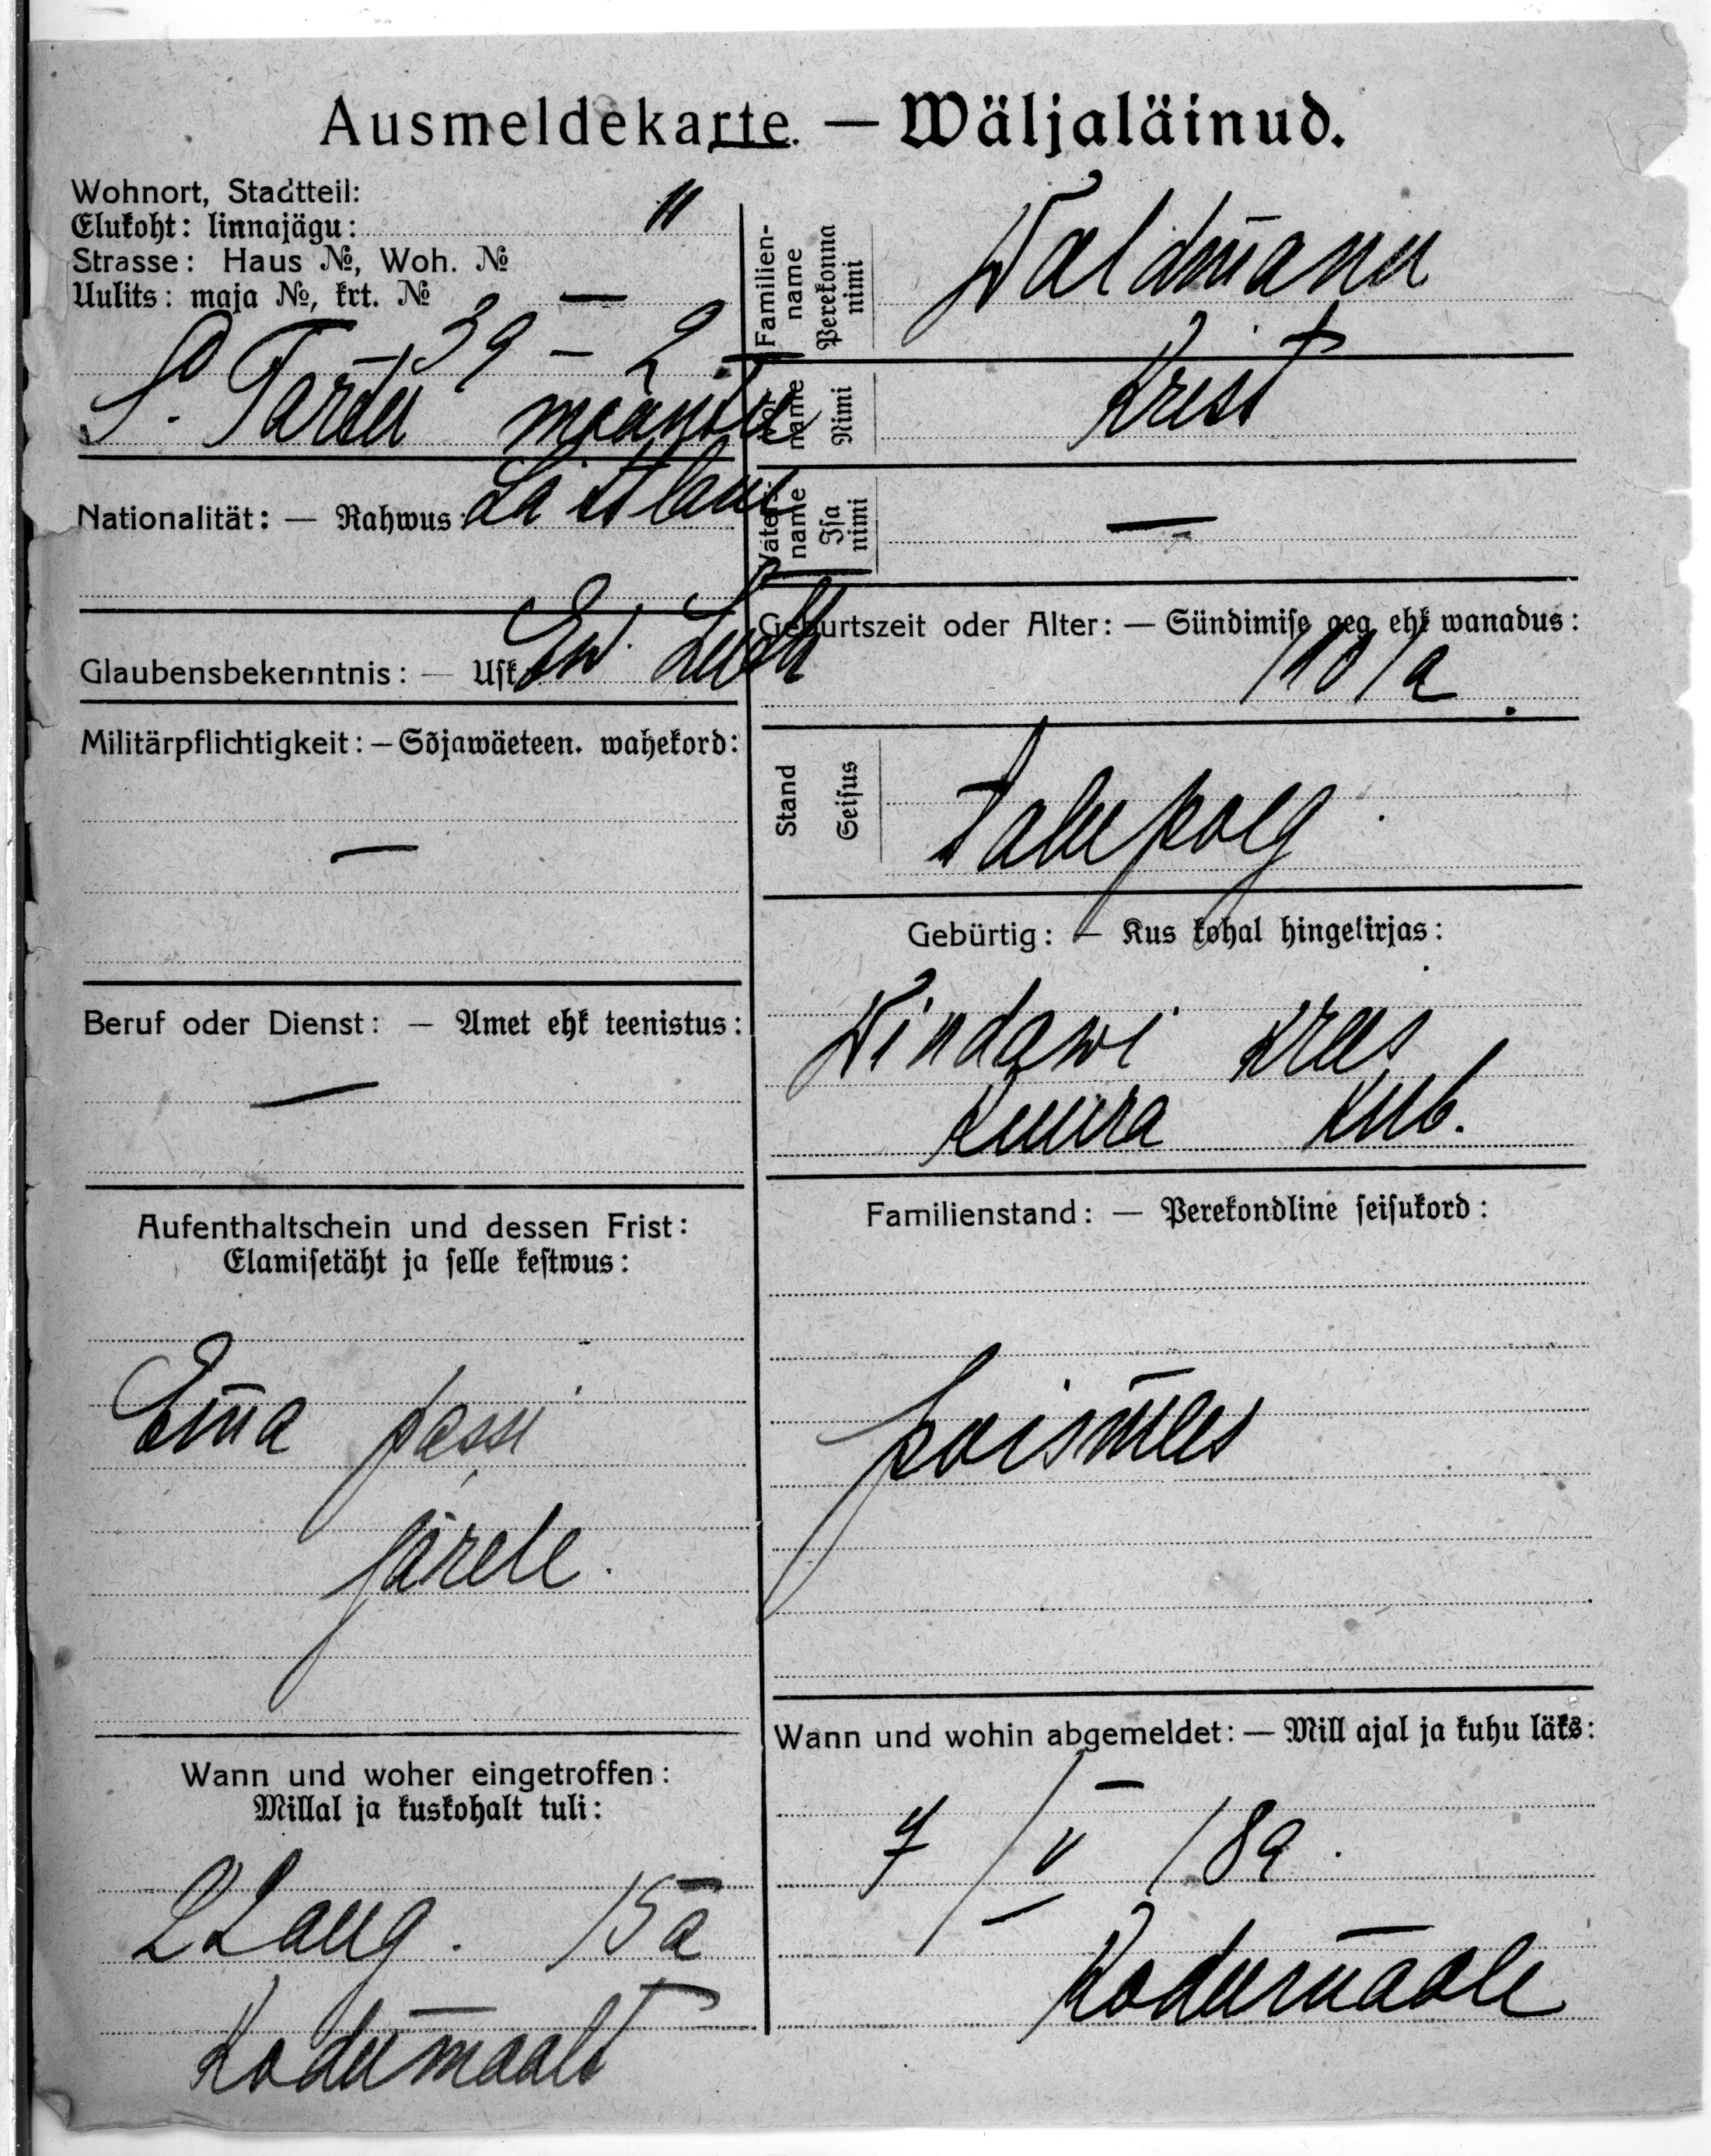 Ausmeldekarte. — Wäljaläinud.
Wohnort, Stadtteil:
Elukoht: linnajägu: "
Strasse: Haus №, Woh. №
Uulits: maja №, krt. № —
39 – 2
S. Tartu maantee
Nationalität: — Rahwus: Lättlane
Glaubensbekenntnis: — Usk Ew. Luth
Militärpflichtigkeit: — Sõjawäeteen. wahekord:
—
Beruf oder Dienst: — Amet ehk teenistus:
—
Aufenthaltschein und dessen Frist:
Elamisetäht ja selle kestwus:
Ema passi
järele.
Wann und woher eingetroffen:
Millal ja kuskohalt tuli:
2 Aug. 15 a
Kodumaalt
Familien-
name
Perekonna
nimi
Waldmann
Vor-
name
Nimi
Krist
Vater-
name
Isa
nimi
—
Geburtszeit oder Alter: — Sündimise aeg ehk wanadus:
Stand
Seisus
Talupoeg.
Gebürtig: — Kus kohal hingekirjas:
Windawi krees
Kuura Kub.
Familienstand: — Perekondline seisukord:
poismees
Wann und wohin abgemeldet: — Mill ajal ja kuhu läks:
7/V 18 a.
Kodumaale